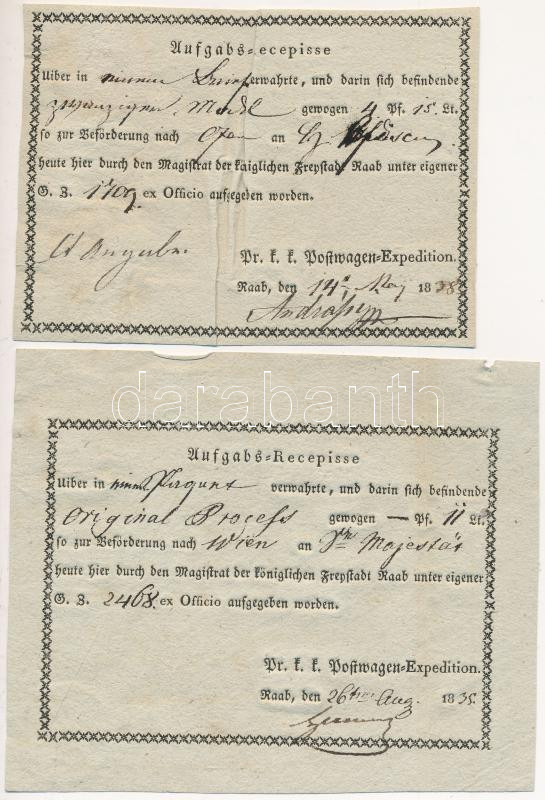 Aufgabs=ecepisse
Uiber in erwahrte, und darin sich befindende
gewogen 4 Pf. 15 Lt.
so zur Beförderung nach Ofen an
heute hier durch den Magistrat der käiglichen Freystadt Raab unter eigener
G. Z. 1709 ex Officio aufgegeben worden.
Pr. k. k. Postwagen=Expedition.
Raab, den 14t May 1838
darabanth
Aufgabs=Recepisse
Uiber in verwahrte, und darin sich befindende
Original Process gewogen — Pf. 11 Lt.
so zur Beförderung nach Wien an Majestät
heute hier durch den Magistrat der königlichen Freystadt Raab unter eigener
G. Z. 2468. ex Officio aufgegeben worden.
Pr. k. k. Postwagen=Expedition.
Raab, den 26ten Aug. 1835.